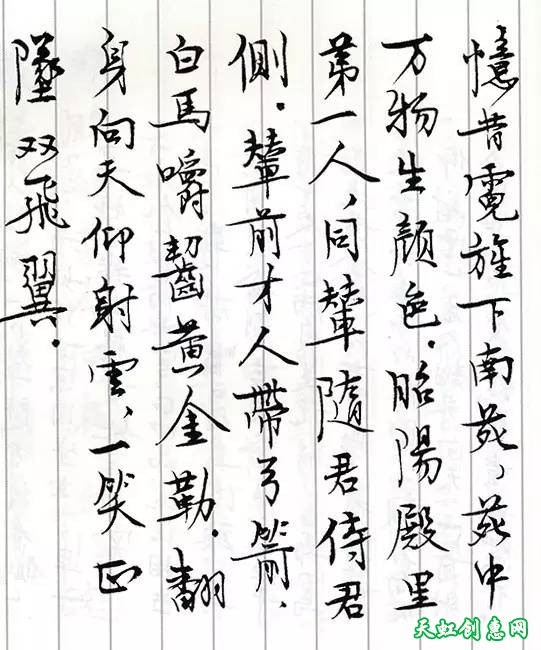 憶昔霓旌下南苑，苑中
万物生顔色．昭陽殿里
第一人，同輦隨君侍君
側．輦前才人帶弓箭．
白馬嚼齧黄金勒．翻
身向天仰射雲，一笑正
墜双飛翼．
天虹创意网